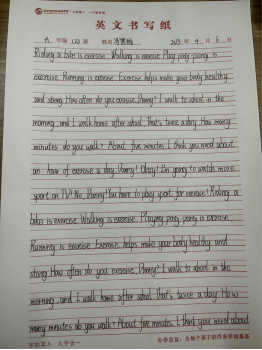 英文书写纸
年级 122 班 姓名 2023 年 4 月 6 日
Riding a bike is exercise. Walking is exercise. Play ping-pong is
exercise. Running is exercise. Exercise helps make your body healthy
and strong. How often do you exercise, Danny? I walk to school in the
morning, and I walk home after school. That's twice a day. How many
minutes do you walk? About five minutes. I think you need about
an hour of exercise a day, Danny! Okay! I'm going to watch more
sport on TV! No, Danny! You have to play sport for exercise! Riding a
bike is exercise. Walking is exercise. Playing ping-pong is exercise.
Running is exercise. Exercise helps make your body healthy and
strong. How often do you exercise, Danny? I walk to school in the
morning, and I walk home after school. That's twice a day. How
many minutes do you walk? About five minutes. I think you need about
字如其人 人字合一 办学宗旨：为每个孩子的终身幸福奠基